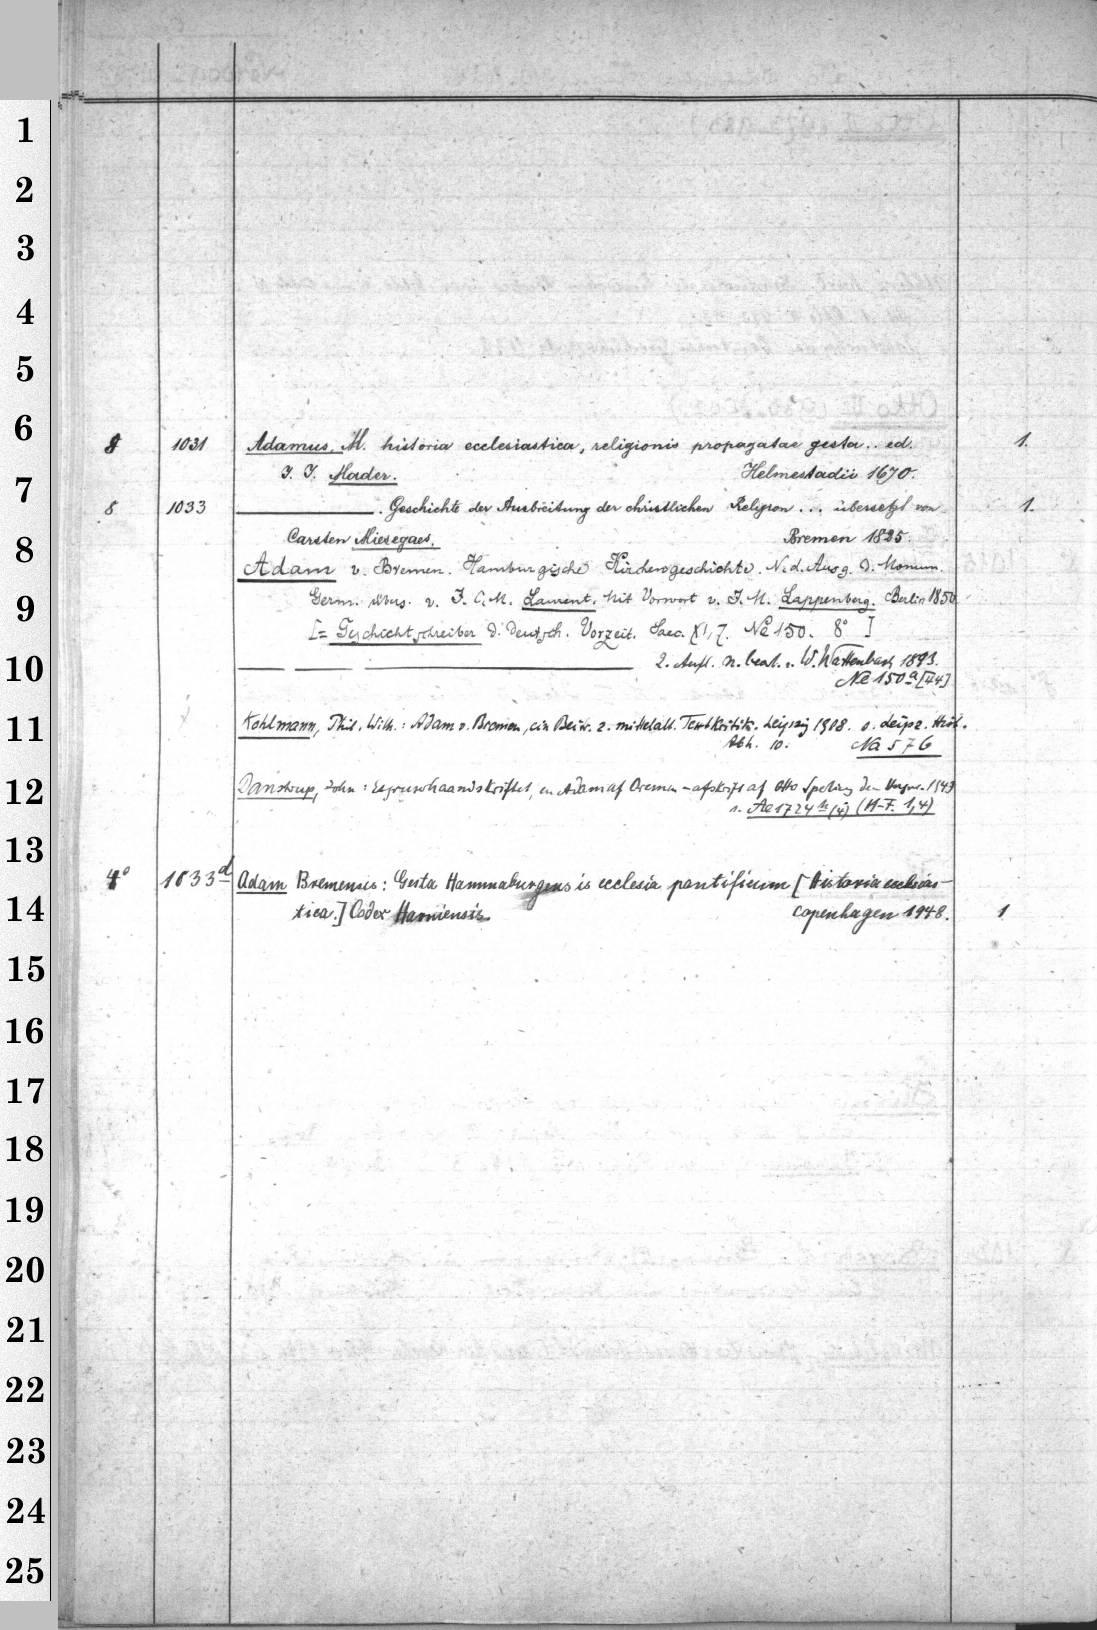 1
2
3
4
5
6
8 1031 Adamus, M. historia ecclesiastica, religionis propagatae gesta .. ed. 1.
J. J. Mader. Helmestadii 1670.
7
8 1033 ———. Geschichte der Ausbreitung der christlichen Religion ... übersetzt von 1.
8
Carsten Miesegaes. Bremen 1825.
Adam v. Bremen. Hamburgische Kirchengeschichte. N. d. Ausg. d. Monum.
9
Germ. übers. v. J. C. M. Laurent. Mit Vorwort v. J. M. Lappenberg. Berlin 1850
[= Geschichtschreiber d. deutsch. Vorzeit. Saec. XI, 7. Ne 150. 8° ]
10
— — ——— 2. Aufl. n. bearb. v. W. Wattenbach 1893.
Ne 150a [44]
11
Kohlmann, Phil. Wilh.: Adam v. Bremen, ein Beitr. z. mittelalt. Textkritik. Leipzig 1908. s. Leipz. Hist.
Abh. 10. Na 576
12
Danstrup, John: en Adam af Bremen - afskrift af Otto Sperling den Yngre. 1943
s. Ae 1724 (4) (H-F. 1,4)
13
4° 1033d Adam Bremensis: Gesta Hammaburgensis ecclesia pontificum [Historia ecclesias-
14
tica.] Codex Havniensis Copenhagen 1948. 1
15
16
17
18
19
20
21
22
23
24
25